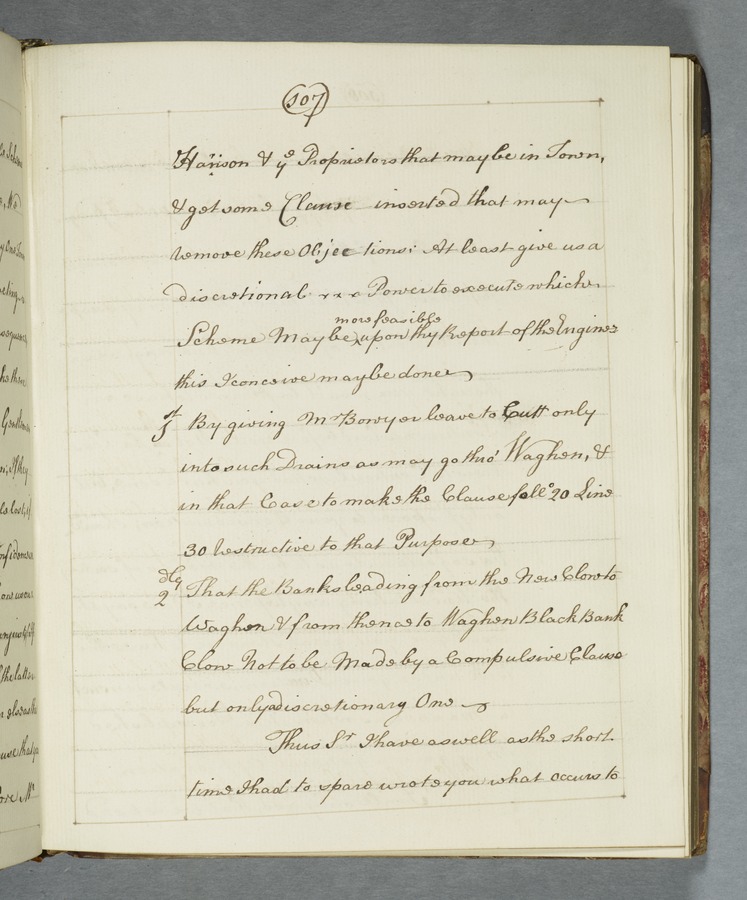 107
Harison & ye Proprietors that may be in Town,
& get some Clause inserted that may
remove these Objections: At least give us a
discretional Power to execute which
more feasible
Scheme May be upon thy Report of the Engineer
this I conceive may be done
1st By giving Mr Bowyer leave to Cutt only
into such Drains as may go thro' Waghen, &
in that Case to make the Clause foll:o 20 Line
30 restructive to that Purpose
2dly That the Banks leading from the New Clow to
Waghen & from thence to Waghen Black Bank
Clow Not to be Made by a Compulsive Clause
but only a discretionary One
Thus Sr. I have as well as the short
time I had to spare wrote you what occurs to